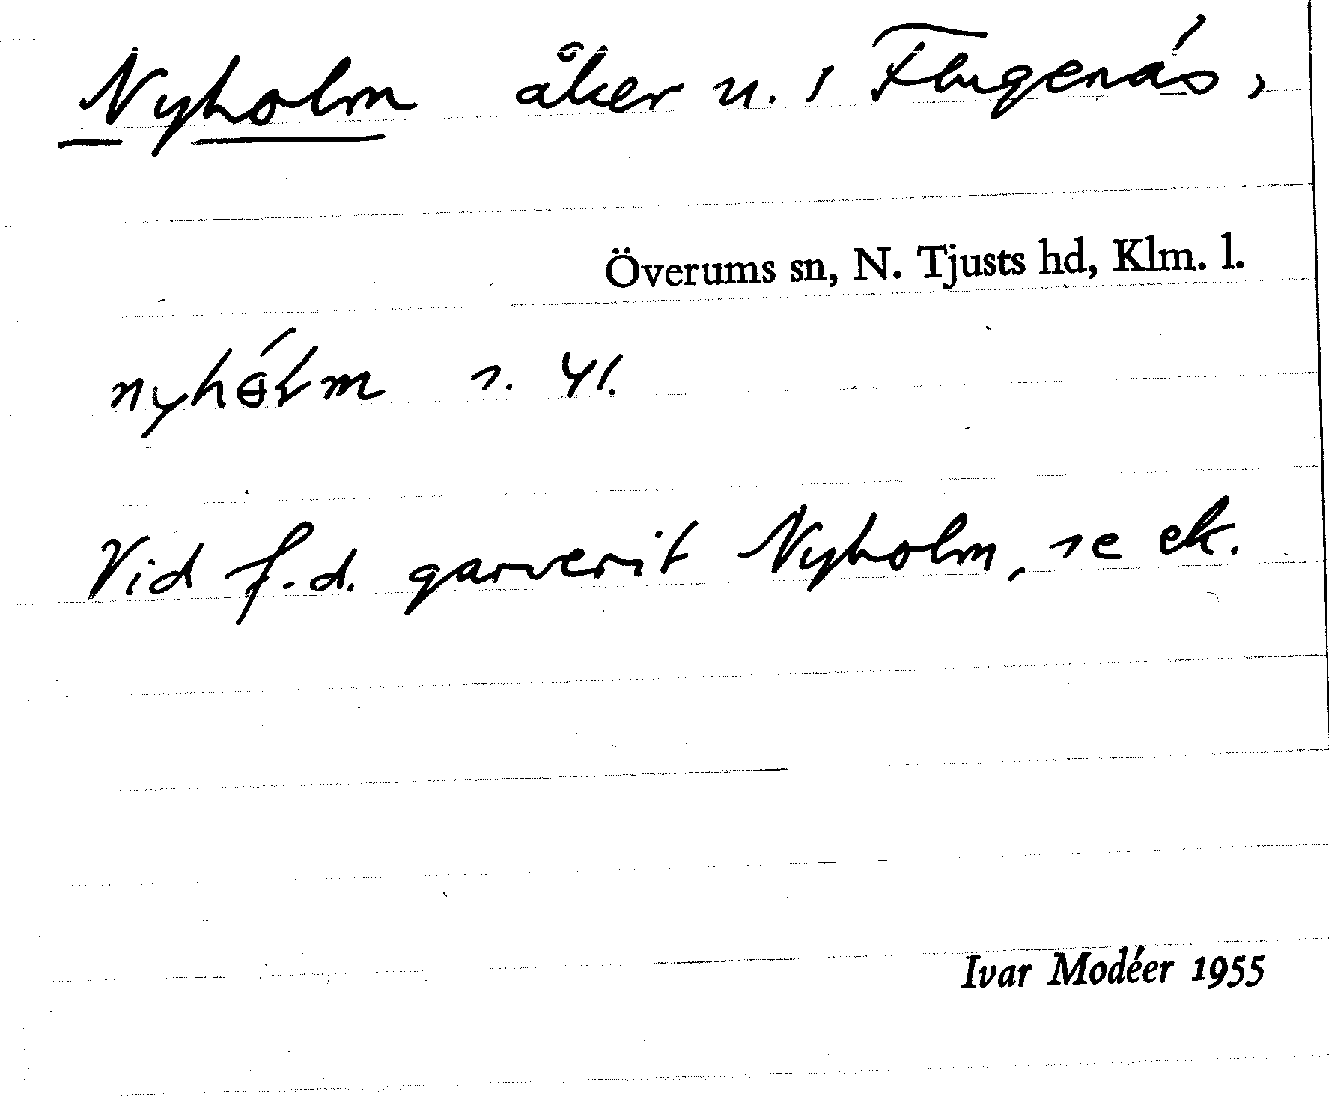 Nyholm åker u. 1 Flugenäs,
Överums sn, N. Tjusts hd, Klm. l.
nyhólm s. 41.
Vid f.d. garverit Nyholm, se ek.
Ivar Modéer 1955